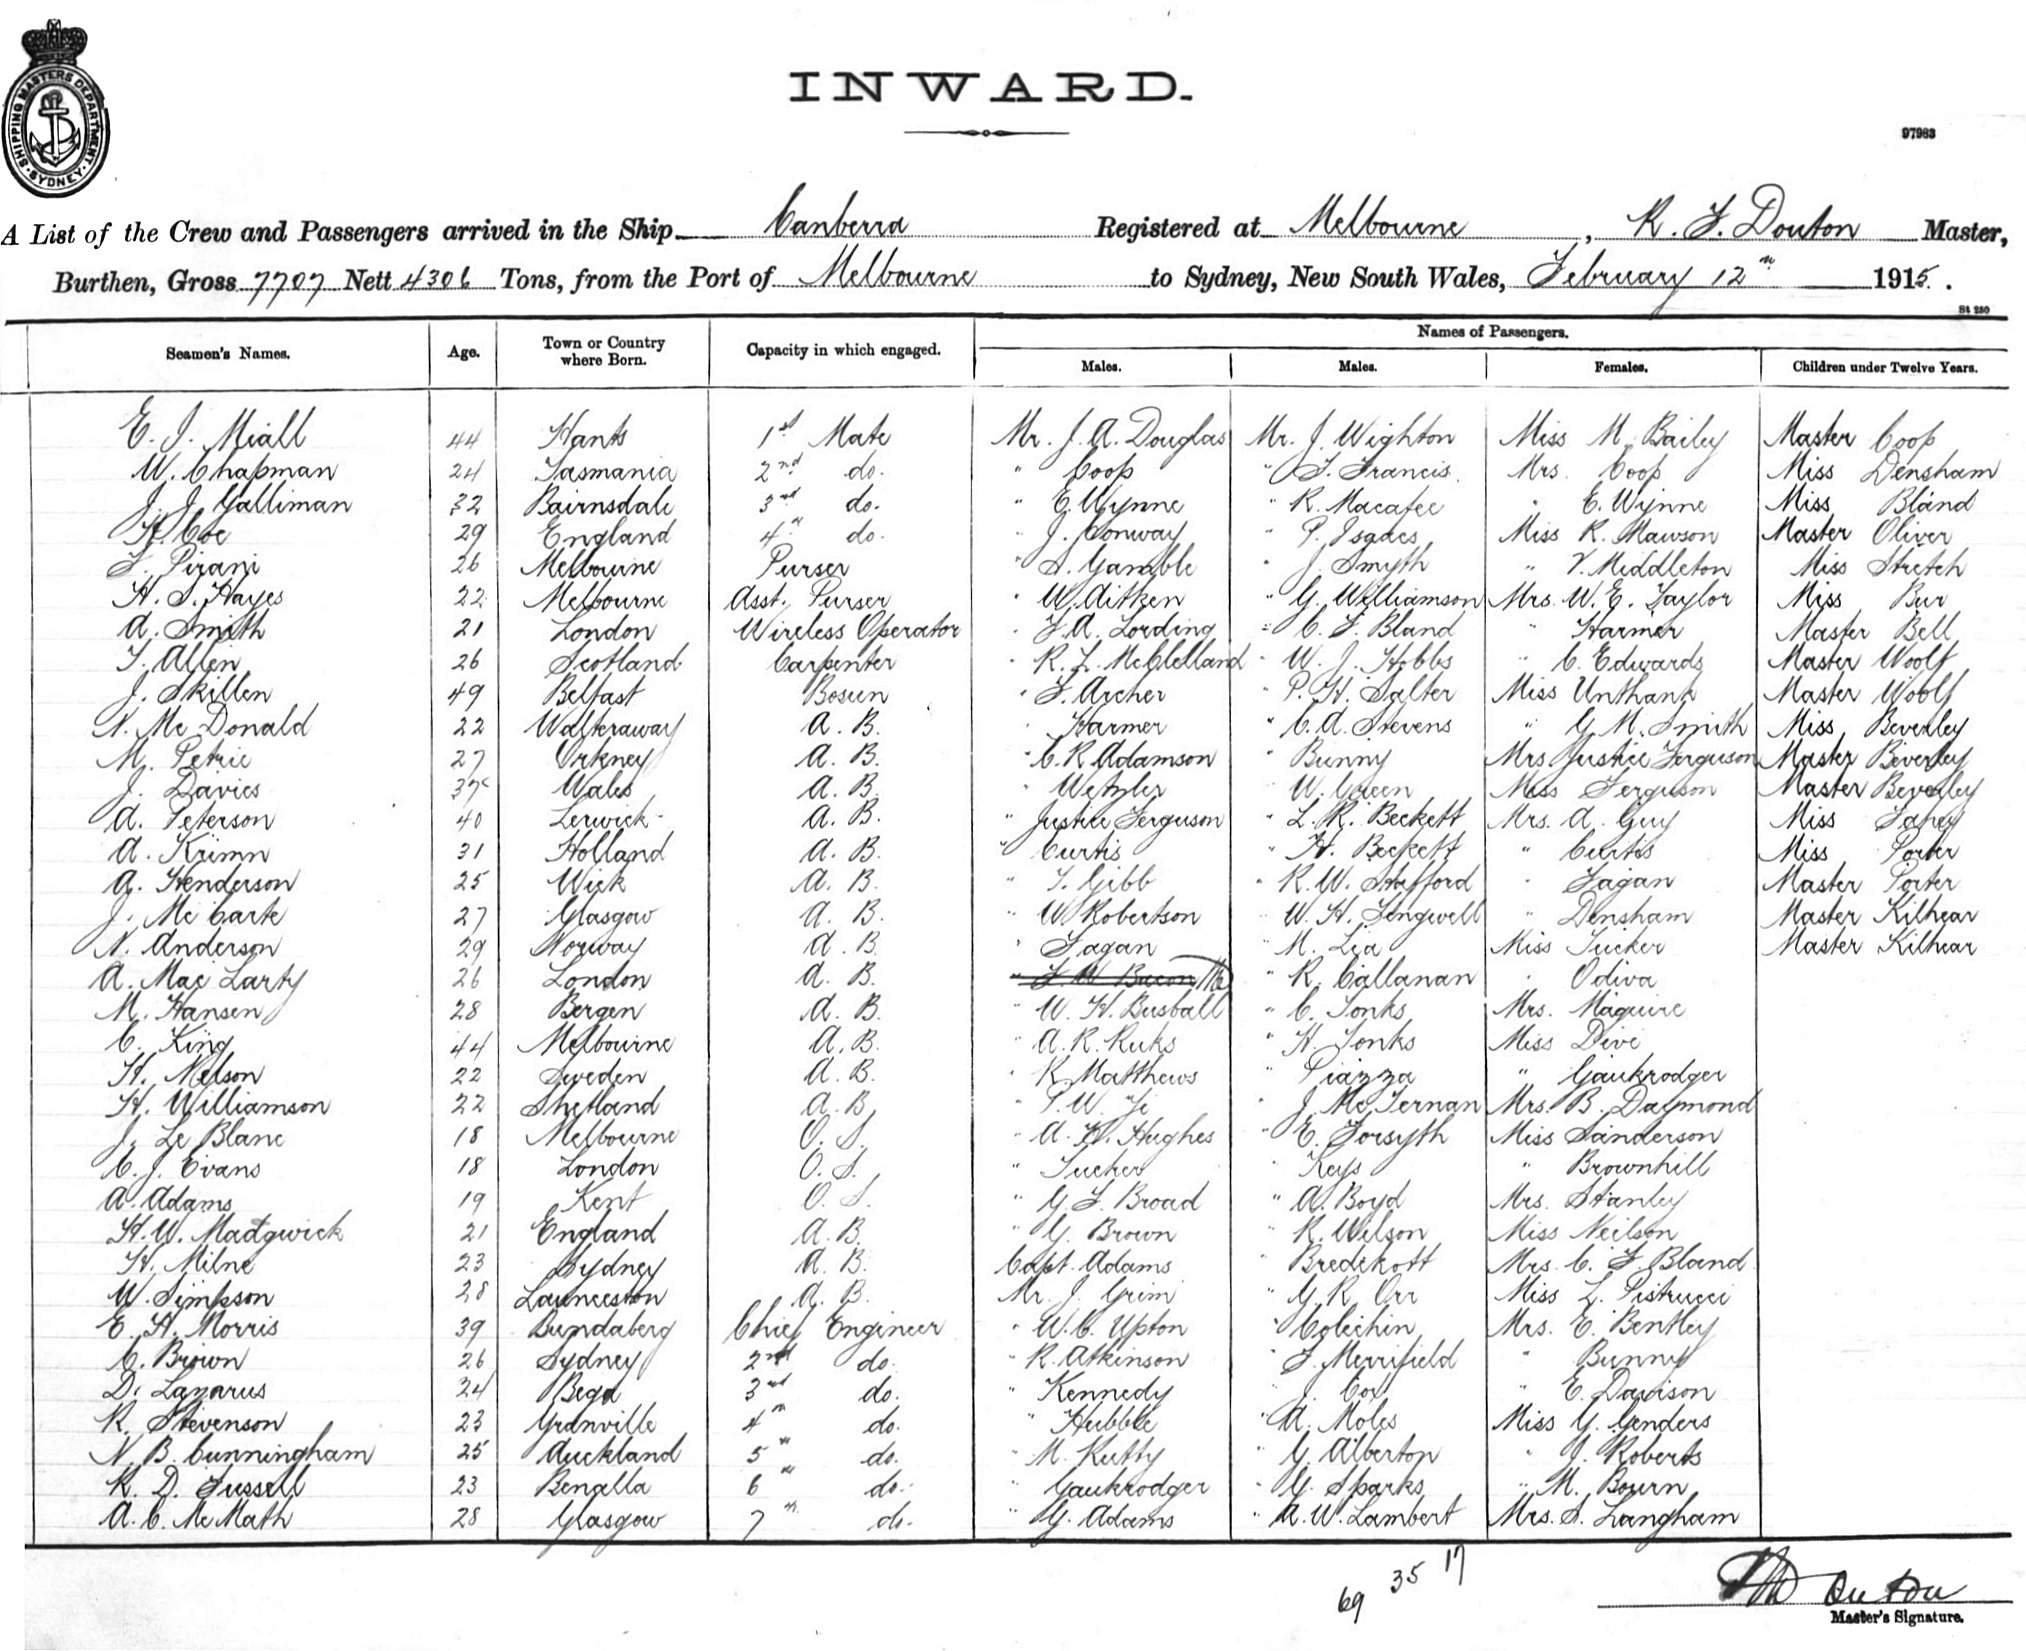 INWARD.
SHIPPING MASTERS DEPARTMENT SYDNEY
97963
A List of the Crew and Passengers arrived in the Ship Canberra Registered at Melbourne, R. F. Douton Master,
Burthen, Gross 7707 Nett 4306 Tons, from the Port of Melbourne to Sydney, New South Wales, February 12th 1915.
St 250
Seamen's Names. Age. Town or Country where Born. Capacity in which engaged. Names of Passengers.
Males. Males. Females. Children under Twelve Years.
E. J. Miall 44 Hants 1st Mate Mr. J. A. Douglas Mr. J. Wighton Miss M. Bailey Master Coop
W. Chapman 24 Tasmania 2nd do. " Coop " F. Francis. Mrs. Coop Miss Densham
J. J. Galliman 32 Bairnsdale 3rd do. " E. Wynne " R. Macafee " E. Wynne Miss Bland
H. Coe 29 England 4th do. " J. Conway " P. Isaacs Miss R. Mawson Master Oliver
F. Pirani 26 Melbourne Purser " S. Gamble " J. Smyth " V. Middleton Miss Stretch
H. S. Hayes 22 Melbourne Asst. Purser " W. Aitken " G. Williamson Mrs. W. E. Taylor Miss Bur
A. Smith 21 London Wireless Operator " F. A. Lording " C. F. Bland " Harmer Master Bell
T. Allen 26 Scotland Carpenter " R. L. McClelland " W. J. Hobbs " C. Edwards Master Woolf
J. Skillen 49 Belfast Bosun " F. Archer " P. H. Salter Miss Unthank Master Woolf
N. Mc Donald 22 A. B. " Harmer " C. A. Stevens " G. M. Smith Miss Beverley
M. Petrie 27 Orkney A. B. " C. R. Adamson " Bunny Mrs Justice Ferguson Master Beverley
J. Davies 37 Wales A. B. " Wetzler " W. Green Miss Ferguson Master Beverley
A. Peterson 40 Lerwick A. B. " Justice Ferguson " L. R. Beckett Mrs. A. Guy Miss Fahey
A. Krimn 31 Holland A. B. " Curtis " H. Beckett " Curtis Miss Porter
A. Henderson 25 Wick A. B. " T. Gibb " R. W. Stafford " Fagan Master Porter
J. Mc Carte 27 Glasgow A. B. " W. Robertson " W. H. Singwell " Densham Master Kilhear
N. Anderson 29 Norway A. B. " Fagan " M. Lia Miss Tucker Master Kilhear
A. Mac Larty 26 London A. B. " F. W. Bacon " R. Callanan " Odiva
M. Hansen 28 Bergen A. B. " W. H. Busball " C. Tonks Mrs. Maguire
C. King 44 Melbourne A. B. " A. R. Ruks " H. Tonks Miss Dive
H. Nelson 22 Sweden A. B. " R. Matthews " Piazza " Gaukrodger
H. Williamson 22 Shetland A. B. " P. W. " J. McTernan Mrs. B. Daymond
J. Le Blanc 18 Melbourne O. S. " A. H. Hughes " E. Forsyth Miss Sanderson
C. J. Evans 18 London O. S. " Tucker " Keys " Brownhill
A. Adams 19 Kent O. S. " G. F. Broad " A. Boyd Mrs. Stanley
H. W. Madgwick 21 England A. B. " G. Brown " R. Wilson Miss Neilson
H. Milne 23 Sydney A. B. Capt. Adams " Bredekott Mrs. C. F. Bland
W. Simpson 28 Launceston A. B. Mr. J. Grim " G. R. Orr Miss L. Pistrucci
E. H. Morris 39 Bundaberg Chief Engineer " W. C. Upton " Colechin Mrs. E. Bentley
C. Brown 26 Sydney 2nd do. " R. Atkinson " F. Merrifield " Bunny
D. Lazarus 24 Bega 3rd do. " Kennedy " J. Cox " E. Davison
R. Stevenson 23 Granville 4th do. " Hubble " A. Moles Miss G. Genders
N. B. Cunningham 25 Auckland 5th do. " M. Rutty " G. Alberton " J. Roberts
R. D. Fussell 23 Benalla 6th do. " Gaukrodger " G. Sparks " M. Bourn
A. C. McMath 28 Glasgow 7th do. " G. Adams " A. W. Lambert Mrs. S. Langham
69 35 17
Douton
Master's Signature.